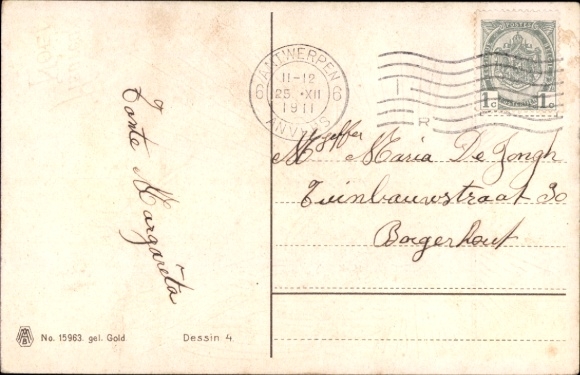 ANTWERPEN
6 6
11-12
25 .XII
1911
ANVERS
POSTES
1c 1c
R
Tante Margareta
Mejeffer Maria De Jongh
Tuinbouwstraat 30
Borgerhout
No. 15963. gel. Gold. Dessin 4.